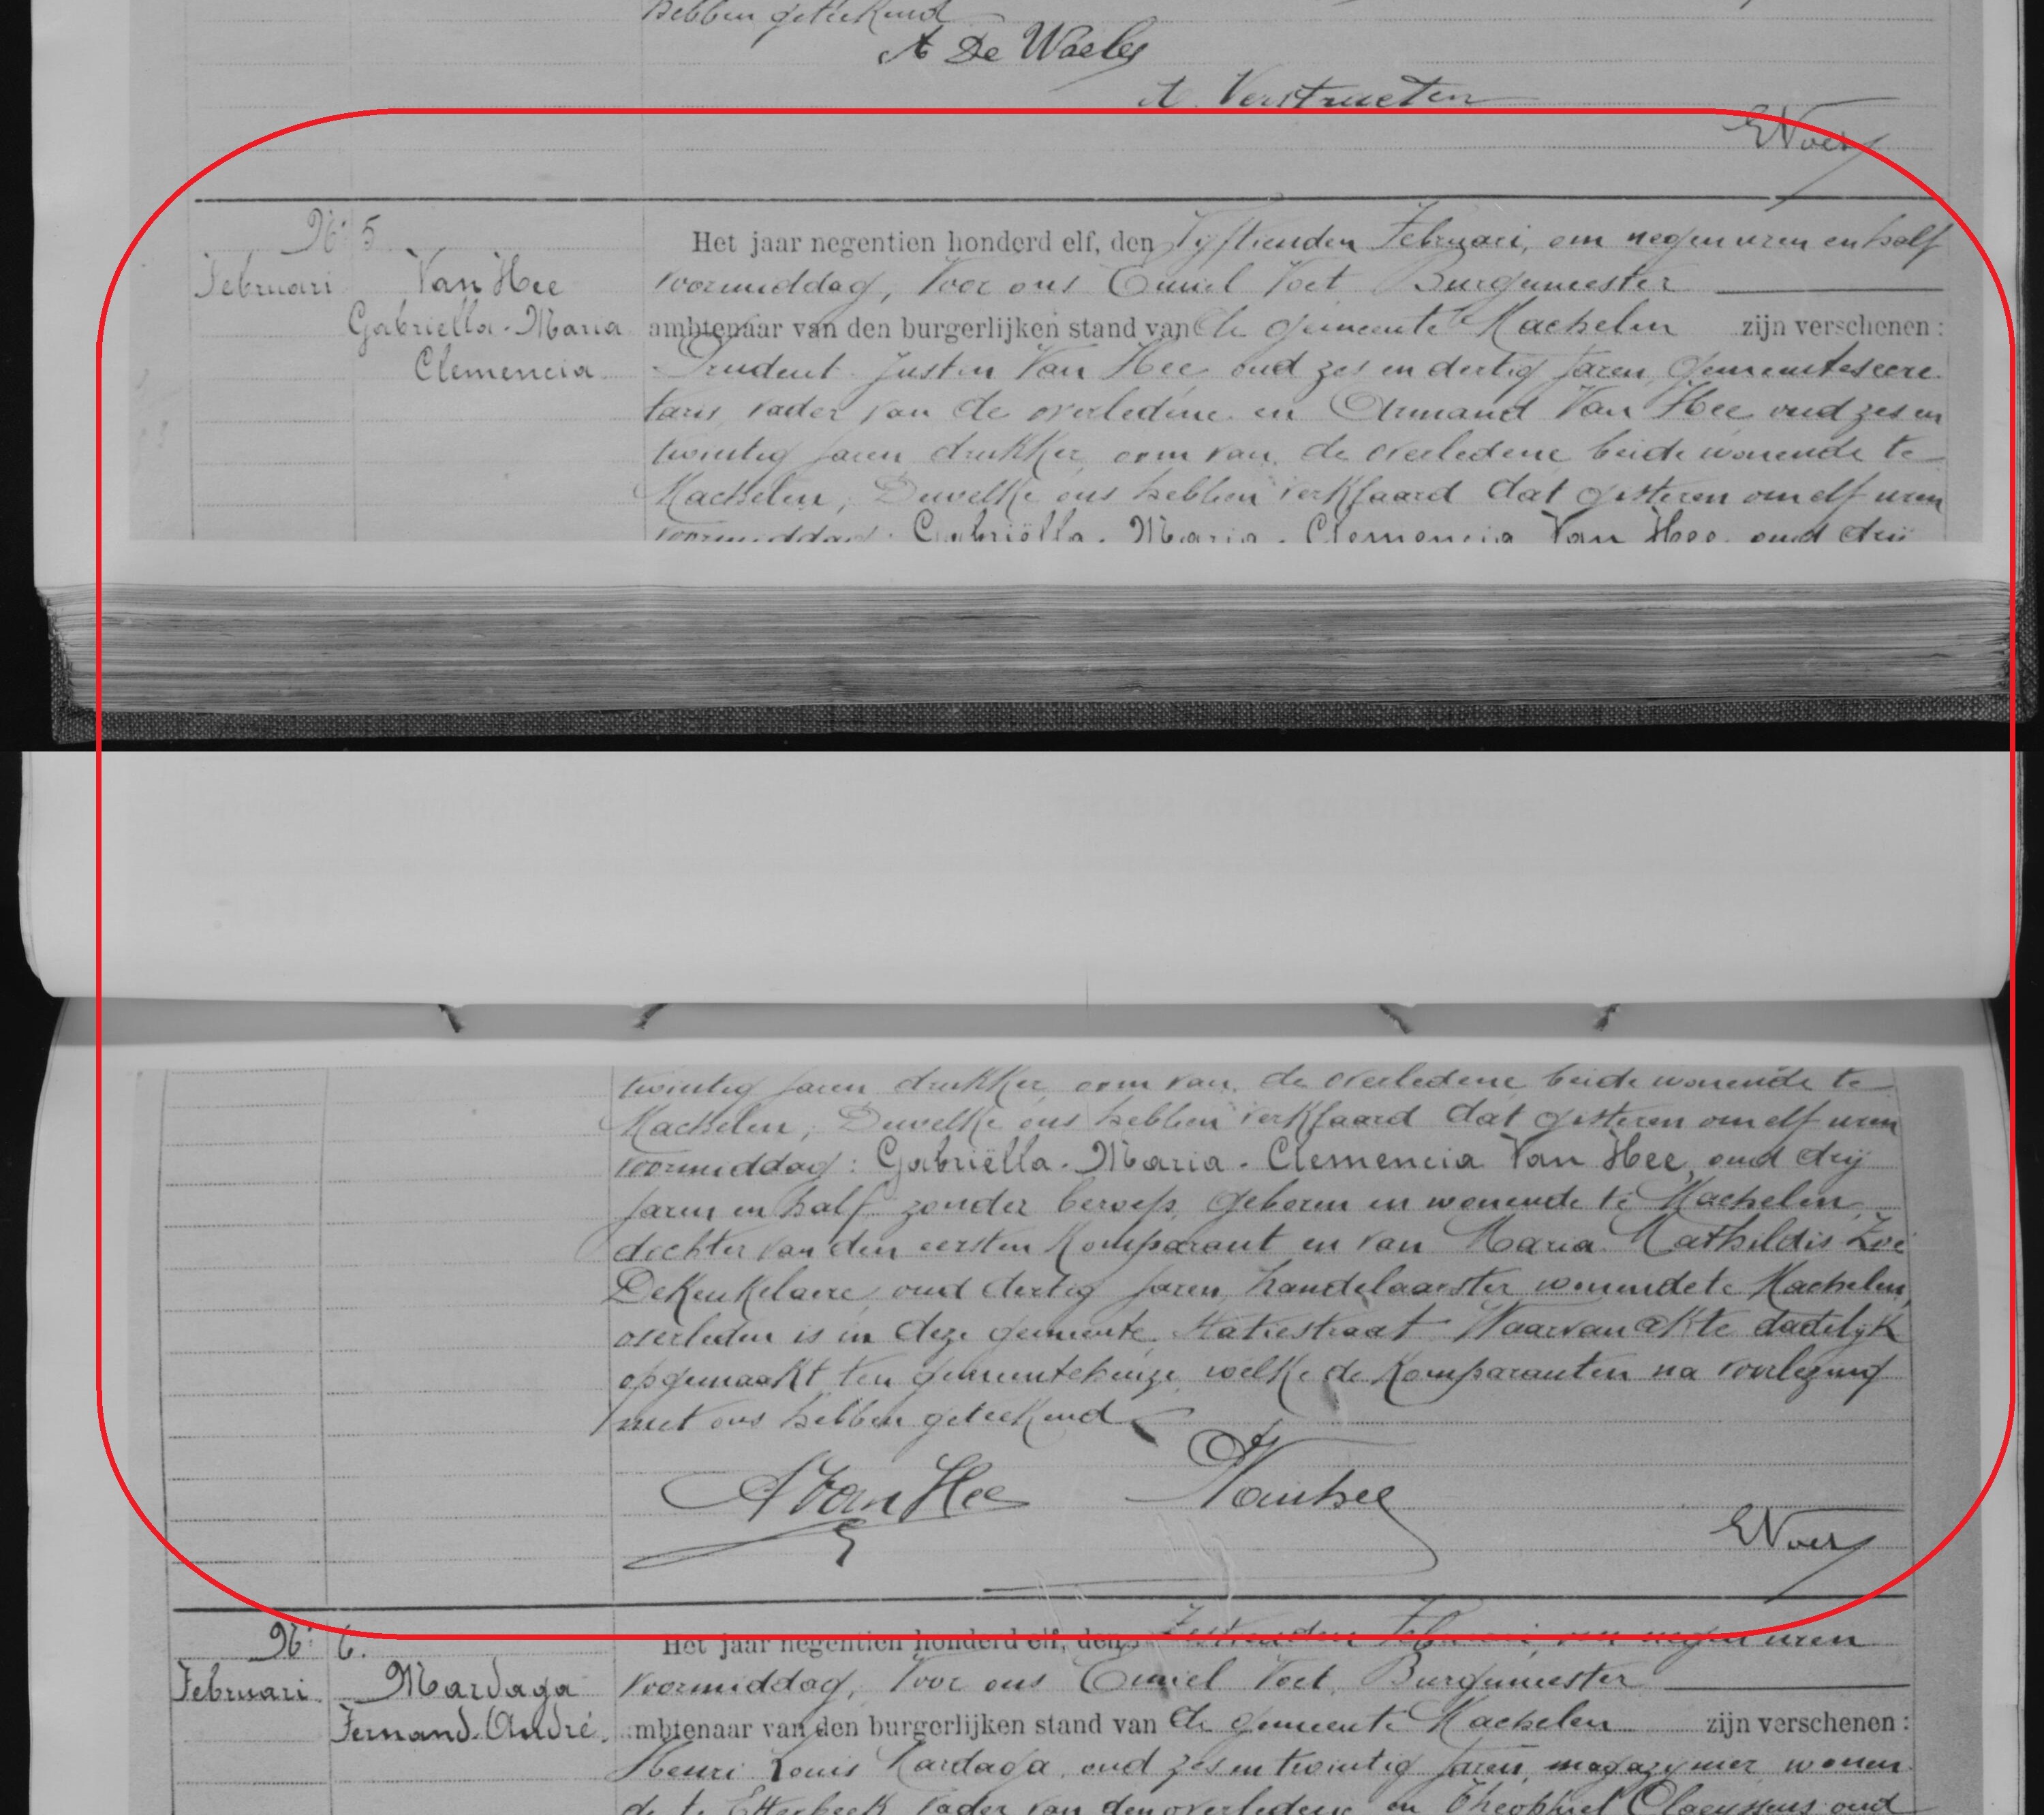 hebben geteekend
A De Waeles
A. Verstraeten
EVoet
No 5
Februari
Van Hee
Gabriella-Maria
Clemencia.
Het jaar negentien honderd elf, den Vijftienden Februari, om negen uren en half
voormiddag, Voor ons Emiel Voet Burgemeester
ambtenaar van den burgerlijken stand van de gemeente Machelen zijn verschenen :
Prudent Justin Van Hee oud zes en dertig jaren, gemeentesecre
taris, vader van de overledene en Armand Van Hee oud zes en
twintig jaren drukker, oom van de overledene beide wonende te
Machelen, Dewelke ons hebben verklaard dat gisteren om elf uren
voormiddag: Gabriëlla-Maria-Clemencia Van Hee, oud drij
twintig jaren drukker, oom van de overledene beide wonende te
Machelen, Dewelke ons hebben verklaard dat gisteren om elf uren
voormiddag: Gabriëlla-Maria-Clemencia Van Hee, oud drij
jaren en half zonder beroep, geboren en wonende te Machelen
dochter van den eersten Komparant en van Maria Mathildis Zoé
DeKeukelaere, oud dertig jaren handelaarster wonende te Machelen,
overleden is in deze gemeente, Statiestraat Waarvan akte dadelijk
opgemaakt ten gemeentehuize, welke de Komparanten na voorlezing
met ons hebben geteekend
A Van Hee
Vanhee
EVoet
No 6.
Februari.
Mardaga
Fernand-André.
Het jaar negentien honderd elf, den Zestienden Februari, om negen uren
voormiddag, Voor ons Emiel Voet, Burgemeester
mbtenaar van den burgerlijken stand van de gemeente Machelen zijn verschenen :
Henri Louis Mardaga, oud zes en twintig jaren, magazynier, wonen
de te Etterbeek vader van den overledene en Theophiel Claeyssens oud